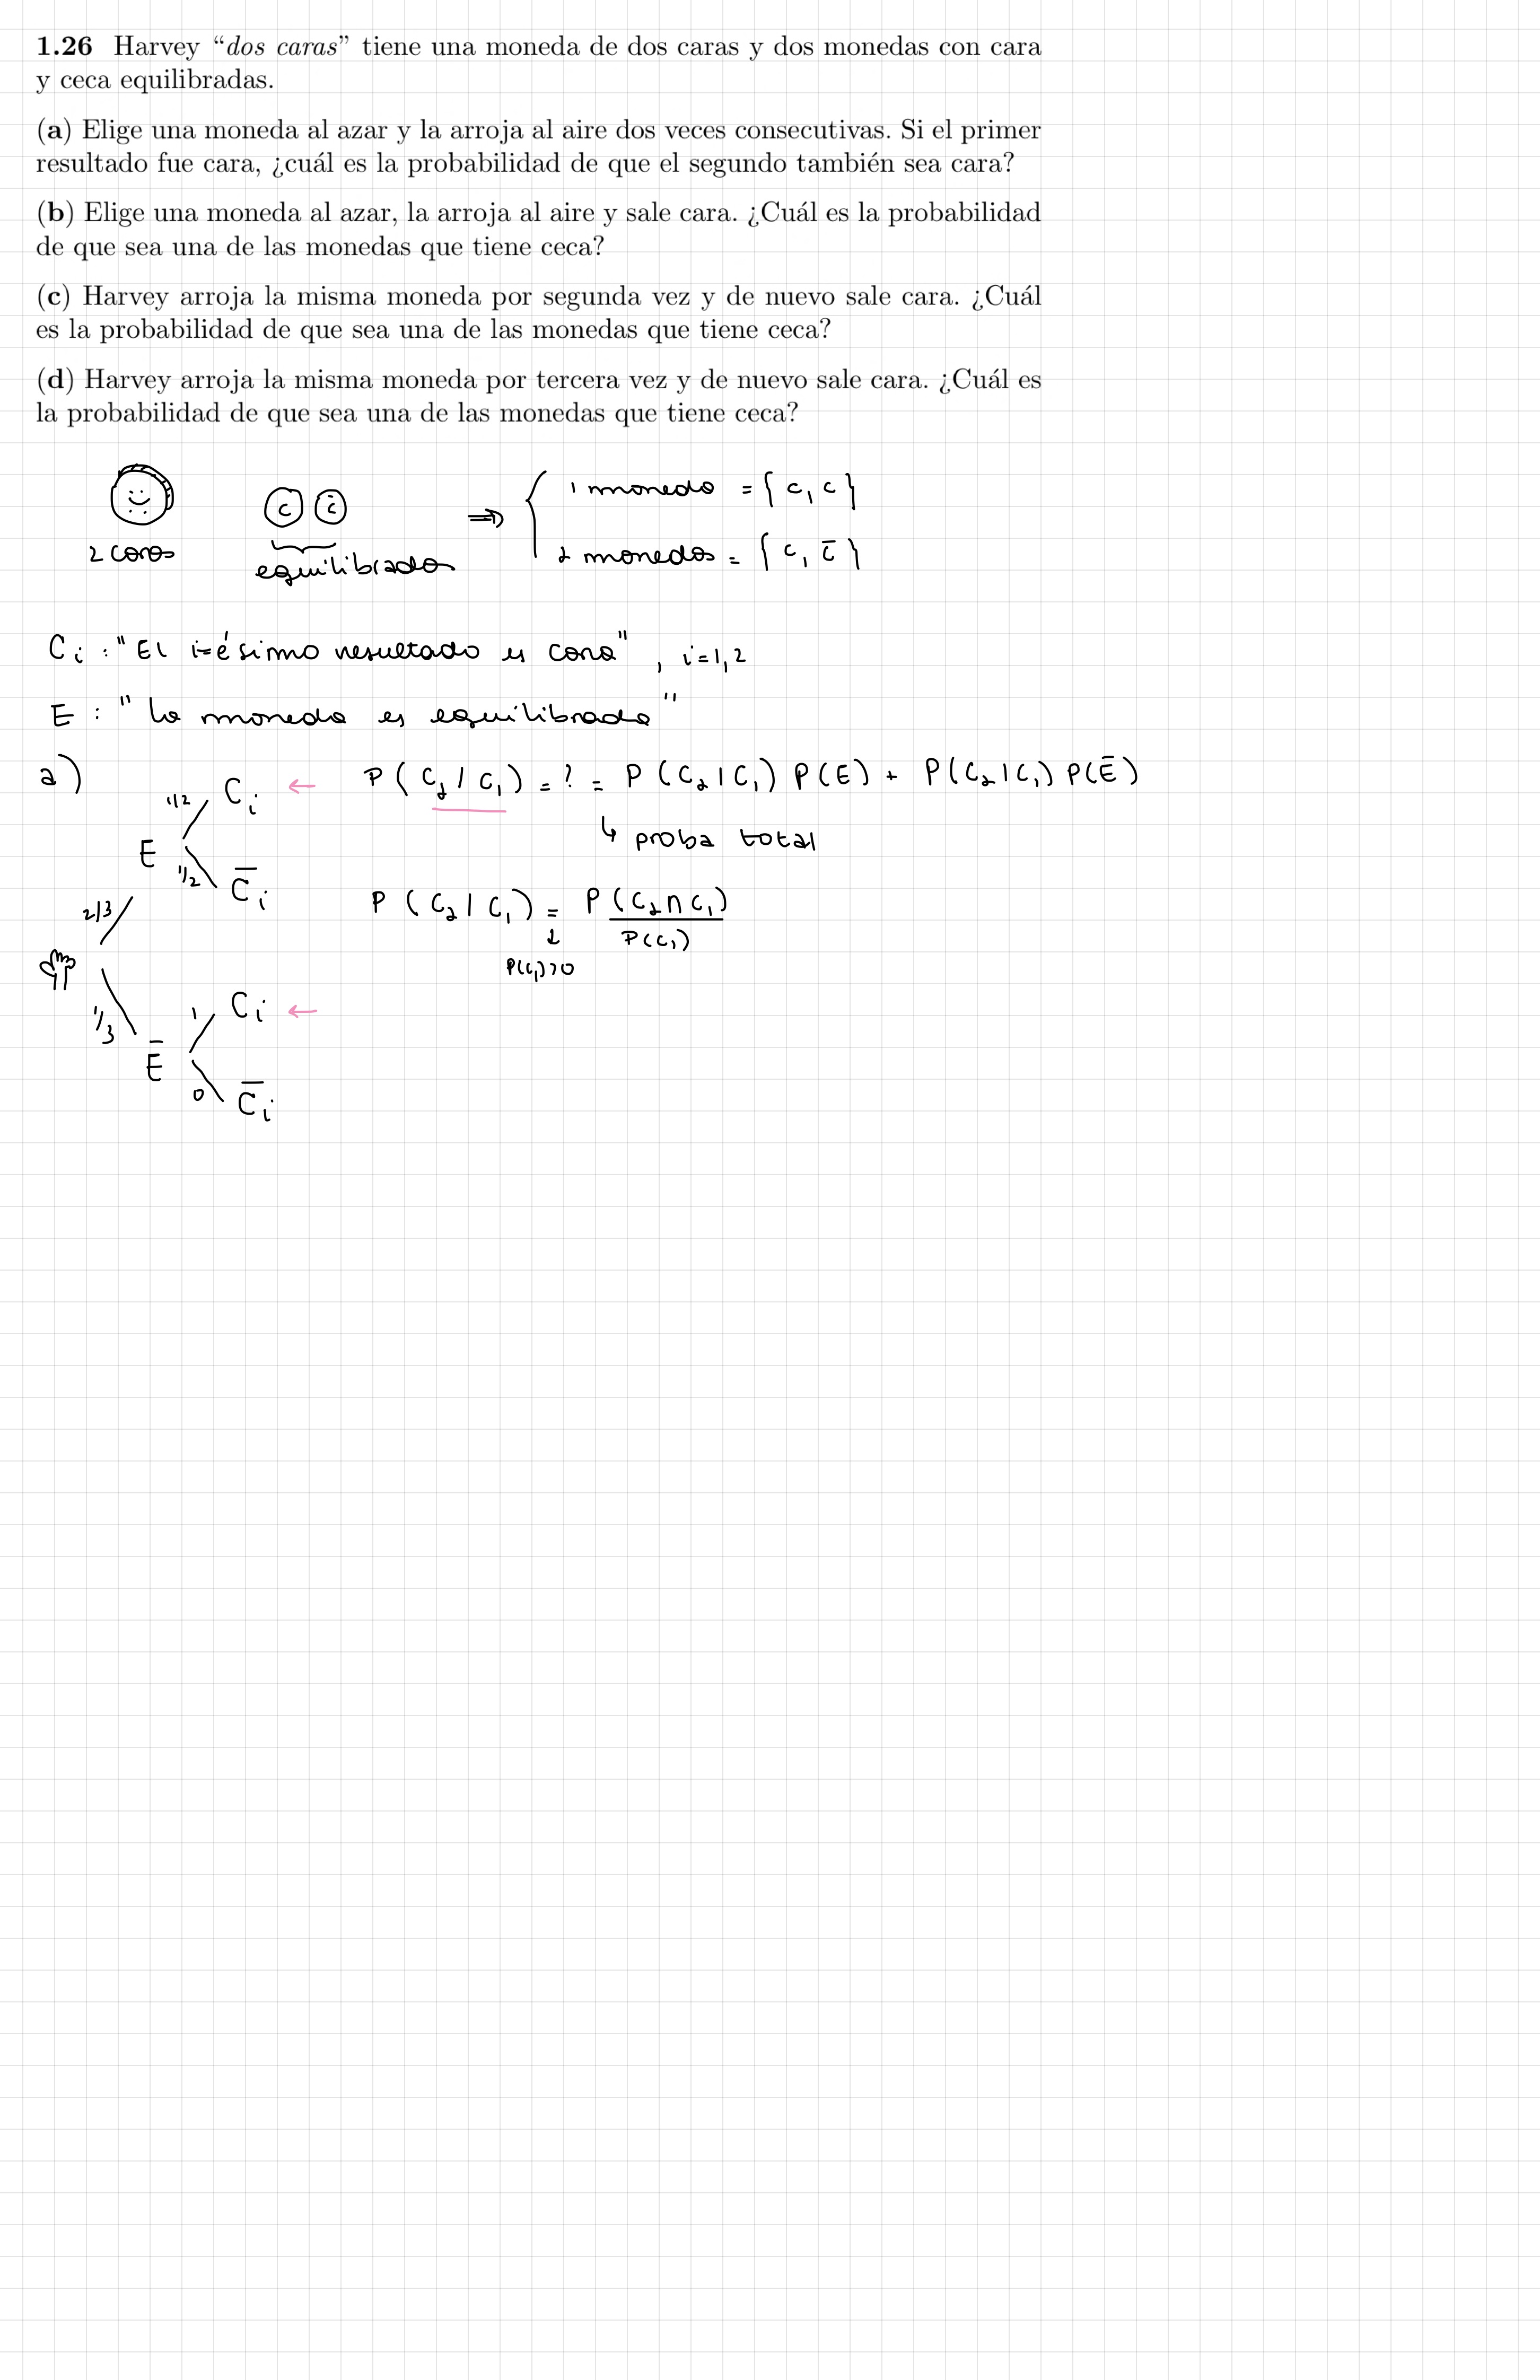 1.26 Harvey “dos caras” tiene una moneda de dos caras y dos monedas con cara
y ceca equilibradas.
(a) Elige una moneda al azar y la arroja al aire dos veces consecutivas. Si el primer
resultado fue cara, ¿cuál es la probabilidad de que el segundo también sea cara?
(b) Elige una moneda al azar, la arroja al aire y sale cara. ¿Cuál es la probabilidad
de que sea una de las monedas que tiene ceca?
(c) Harvey arroja la misma moneda por segunda vez y de nuevo sale cara. ¿Cuál
es la probabilidad de que sea una de las monedas que tiene ceca?
(d) Harvey arroja la misma moneda por tercera vez y de nuevo sale cara. ¿Cuál es
la probabilidad de que sea una de las monedas que tiene ceca?
c c̄ ⇒ { 1 moneda = {c, c}
2 caras equilibradas 2 monedas = {c, c̄}
Ci : "El i-ésimo resultado es cara", i=1,2
E : "La moneda es equilibrada"
a) 1/2 Ci ← P(C2 | C1) = ? = P(C2 | C1) P(E) + P(C2 | C1) P(Ē)
↳ proba total
E
1/2 C̄i
P(C2 | C1) = P(C2 ∩ C1)
2/3 ↓ P(C1)
P(C1)>0
1/3 1 Ci ←
Ē
0 C̄i